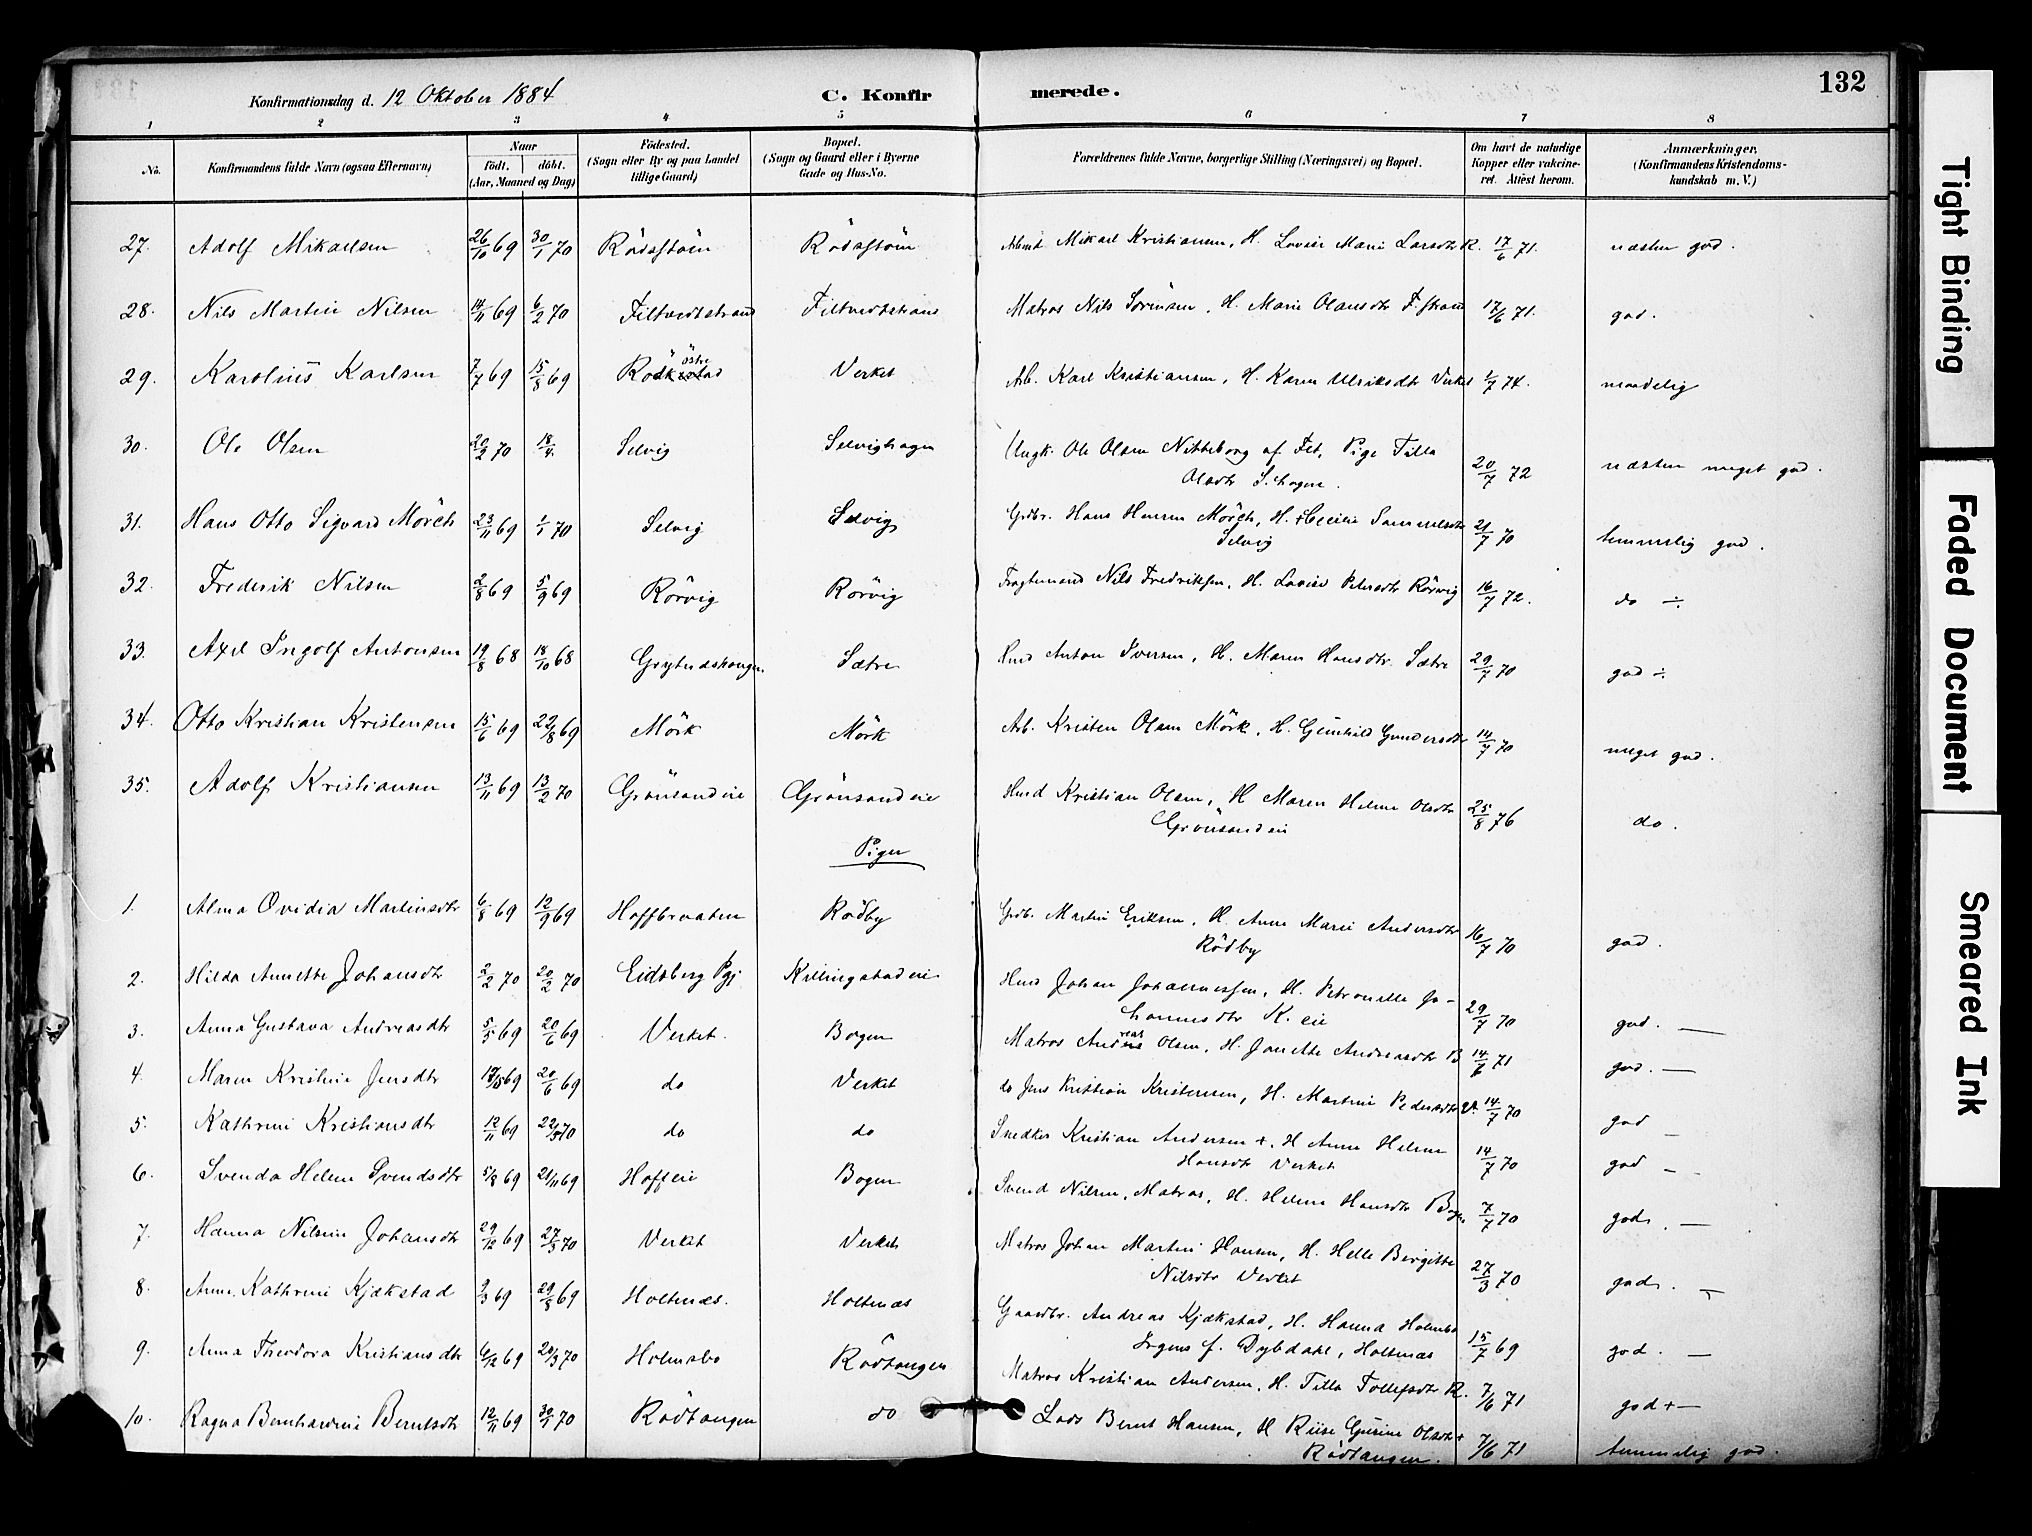 132
Konfirmationsdag d. 12 Oktober 1884 C. Konfirmerede.
1 2 3 4 5 6 7 8
No. Konfirmandens fulde Navn (ogsaa Efternavn) Naar født. døbt. (Aar, Maaned og Dag) Födested. (Sogn eller By og paa Landet tillige Gaard) Bopæl. (Sogn og Gaard eller i Byerne Gade og Hus-No. Forældrenes fulde Navne, borgerlige Stilling (Næringsvei) og Bopæl. Om havt de naturlige Kopper eller vakcineret. Attest herom. Anmærkninger, (Konfirmandens Kristendomskundskab m. V.)
27. Adolf Mikaelsen 26/10 69 30/1 70 Mikael Kristiansen, H. Lovise Marie Larsdtr R. 17/6 71. næsten god.
28. Nils Martin Nilsen 14/11 69 6/2 70 Filtvedtstrand Filtvedtstrand Matros Nils Sørensen, H. Marie Olausdtr F.strand 17/6 71. god.
29. Karolius Karlsen 7/7 69 15/8 69 östre Verket Arb. Karl Kristiansen, H. Karen Ulriksdtr Verket 1/7 74. maadelig
30. Ole Olsen 20/2 70 18/4 Selvig Selvighagen Ungk. Ole Olsen Nitteborg af Fet, Pige Tilla
Olsdtr S.hagen. 20/7 72 næsten meget god.
31. Hans Otto Sigvard Mörch 23/11 69 1/1 70 Selvig Selvig Grdbr. Hans Hansen Mörch, H. +Cecilie Samuelsdtr
Selvig 21/7 70 temmelig god.
32. Frederik Nilsen 2/8 69 5/9 69 Rörvig Rörvig Fragtemand Nils Fredriksen, H. Lovise Petersdtr Rörvig 16/7 72. do ÷
33. Axel Ingolf Antonsen 19/8 68 18/10 68 Sætre Husd Anton Iversen, H. Maren Hansdtr. Sætre 29/7 70 god ÷
34. Otto Kristian Kristensen 15/6 69 22/8 69 Mörk Mörk Arb. Kristen Olsen Mörk, H. Gunhild Gundersdtr 14/7 70 meget god.
35. Adolf Kristiansen 13/11 69 13/2 70 Grönsandeie Grönsandeie Husd Kristian Olsen, H Maren Helene Olsdtr
Grönsandeie 25/8 76 do.
Piger
1. Alma Ovidia Martinsdtr 6/8 69 12/9 69 Hoffbraaten Rödby Grdb. Martin Eriksen, H. Anne Marie Andersdtr
Rödby 16/7 70 god.
2. Hilda Annette Johansdtr 2/2 70 20/2 70 Eidsberg Pgj Killingstadeie Husd Johan Johannessen, H. Petronelle Jo-
hannesdtr K.eie 29/7 70 god. —
3. Anna Gustava Andreasdtr 5/5 69 20/6 69 Verket. Bogen Matros Andreas Olsen, H. Janette Andersdtr B 14/7 71 god. —
4. Maren Kristine Jensdtr 17/5 69 20/6 69 do Verket do Jens Kristian Kristensen, H. Martine Pedersdtr V. 14/7 70 god —
5. Kathrine Kristiansdtr 12/11 69 22/5 70 do do Snedker Kristian Andersen +, H Anne Helene
Hansdtr Verket 14/7 70 god —
6. Svenda Helene Svendsdtr 5/8 69 21/11 69 Hoffeie Bogen Svend Nilsen, Matros, H. Helene Hansdtr Bogen 7/7 70 god. —
7. Hanna Nilsine Johansdtr 29/12 69 27/3 70 Verket Verket Matros Johan Martin Hansen, H. Helle Birgitte
Nilsdtr Verket 27/3 70 god. —
8. Anne Kathrine Kjækstad 9/3 69 29/8 69 Holtenæs. Holtenæs Gaardbr. Andreas Kjækstad, H. Hanna Holmbo
Jrgens f. Dybdahl, Holtenæs 15/7 69 god. —
9. Anna Theodora Kristiansdtr 6/12 69 20/3 70 Holmsbo Rödtangen Matros Kristian Andersen, H. Tilla Tollefsdtr R. 7/6 71 god + —
10. Ragna Bernhardine Berntsdtr 12/11 69 30/1 70 Rödtangen do Lods Bernt Hansen, H Riise Gurine Olsdtr +
Rödtangen. 7/6 71 temmelig god.
Tight Binding
Faded Document
Smeared Ink